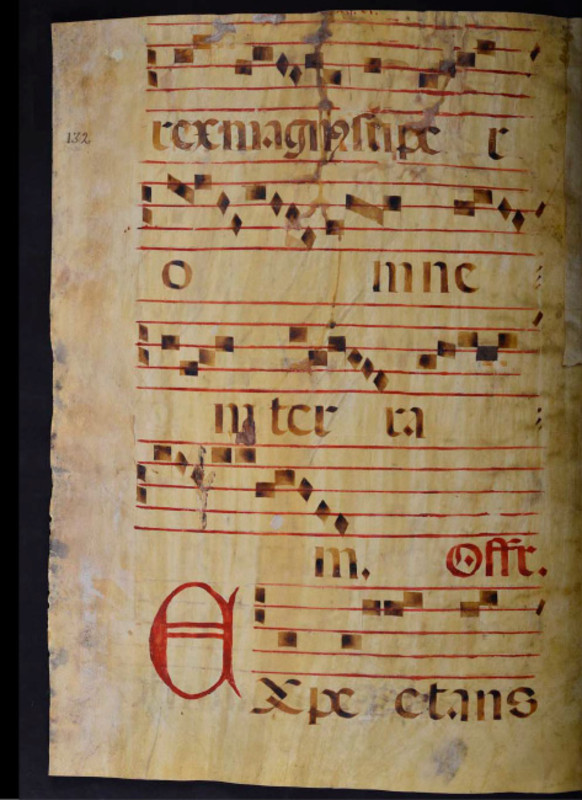 132
rex magnus supe r
o mne
m ter ra
m. Offr.
E xpe ctans